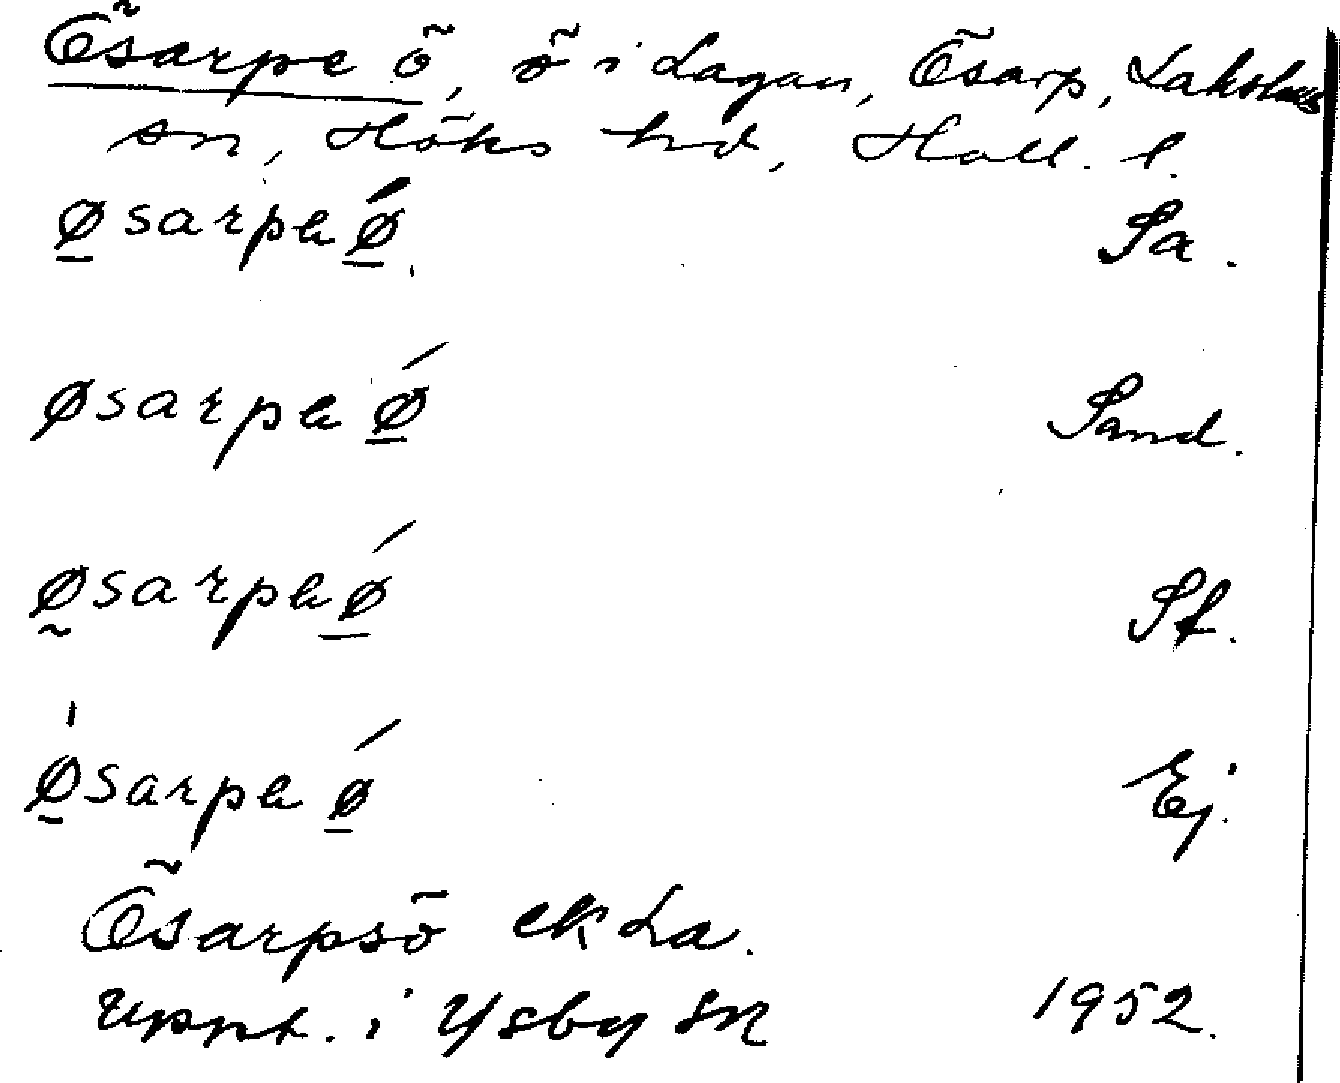 Ösarpe ö, ö i Lagan, Ösarp, Laholms
sn, Höks hd, Hall. l.
øsarpa ǿ. Sa.
øsarpa ǿ Sand.
øsarpa ǿ St.
øsarpa ǿ Ej.
Ösarpsö ek La.
Uppt. i Ysby sn 1952.